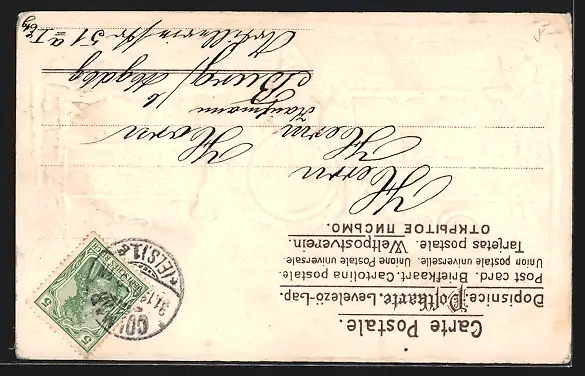 Carte Postale.
Dopisnice. Postkarte. Levelező-Lap.
Post card. Briefkaart. Cartolina postale.
Union postale universelle. Unione Postale universale
Tarjetas postale. Weltpostverein.
ОТКРЫТОЕ ПИСЬМО.
Herrn
Herrn Horn
Kaufmann
Burg b/ Magdbg
5
5
(ELS) 1.